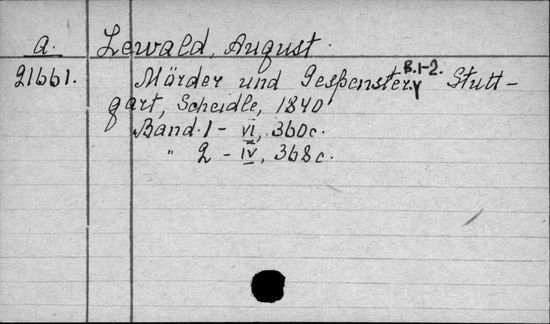 a. Lewald, August.
21661. Mörder und Gespenster. B.1-2. Stutt-
gart, Scheidle, 1840
Band. 1 - VI, 360 c.
" 2 - IV, 368 c.